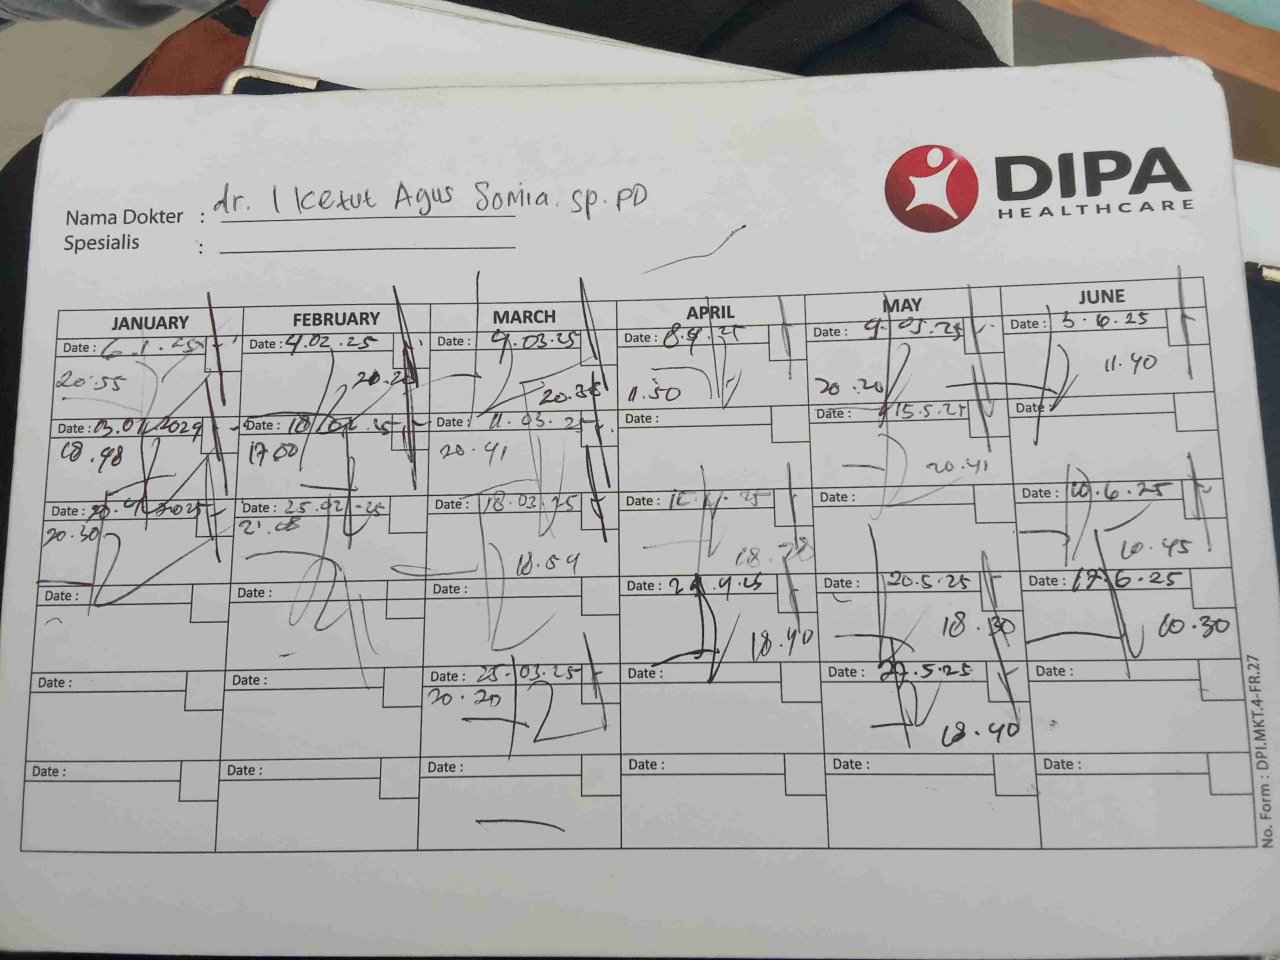 DIPA
HEALTHCARE
Nama Dokter : dr. I Ketut Agus Somia. Sp. PD
Spesialis :
JANUARY FEBRUARY MARCH APRIL MAY JUNE
Date : 6.1.25 Date : 4.02.25 Date : 4.03.25 Date : 8.4.25 Date : 9.05.25 Date : 3.6.25
20.55 20.20 20.35 11.50 20.20 11.40
Date : Date : 18.02.25 Date : 11.03.25 Date : Date : 15.5.25 Date :
18.48 17.00 20.41 20.41
Date : Date : 25.02.25 Date : 18.03.25 Date : Date : Date : 10.6.25
20.30 21.08 18.54 18.28 10.45
Date : Date : Date : Date : Date : 20.5.25 Date : 17.6.25
18.40 18.30 10.30
Date : Date : Date : 25.03.25 Date : Date : 27.5.25 Date :
20.20 18.40
Date : Date : Date : Date : Date : Date :
No. Form : DPI.MKT.4-FR.27